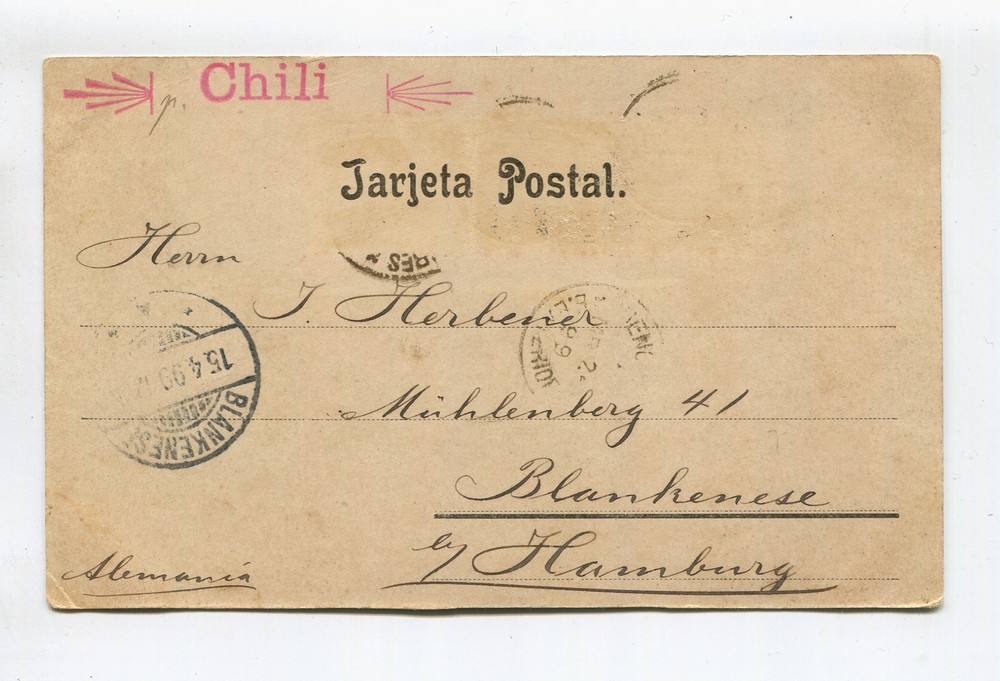 p. Chili
Jarjeta Postal.
Herrn
RES
J. Herbener
Mühlenberg 41
15.4.99
BLANKENES
Blankenese
by Hamburg
Alemania